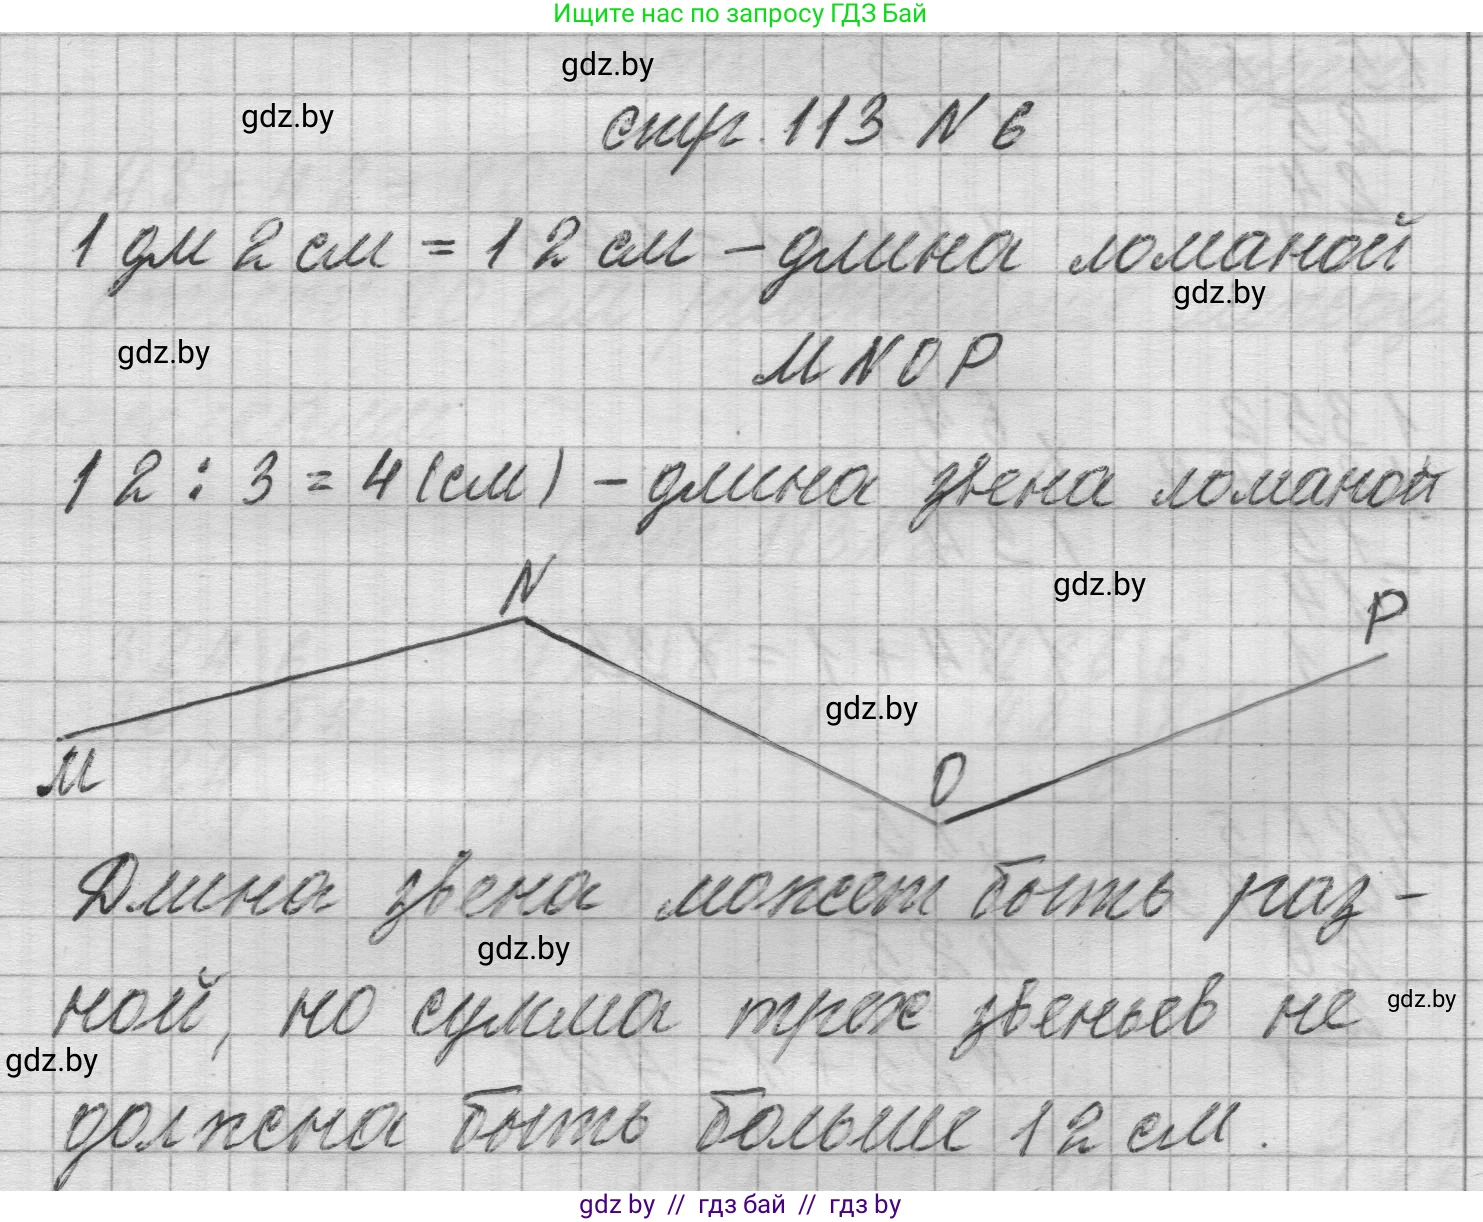 Ищите нас по запросу ГДЗ Бай
gdz.by
gdz.by
стр. 113 N 6
1 дм 2 см = 12 см – длина ломаной
gdz.by
gdz.by
MNOP
12 : 3 = 4 (см) – длина звена ломаной
N
gdz.by
P
gdz.by
M
O
Длина звена может быть раз-
gdz.by
ной, но сумма трех звеньев не
gdz.by
gdz.by
должна быть больше 12 см.
gdz.by // гдз бай // гдз by